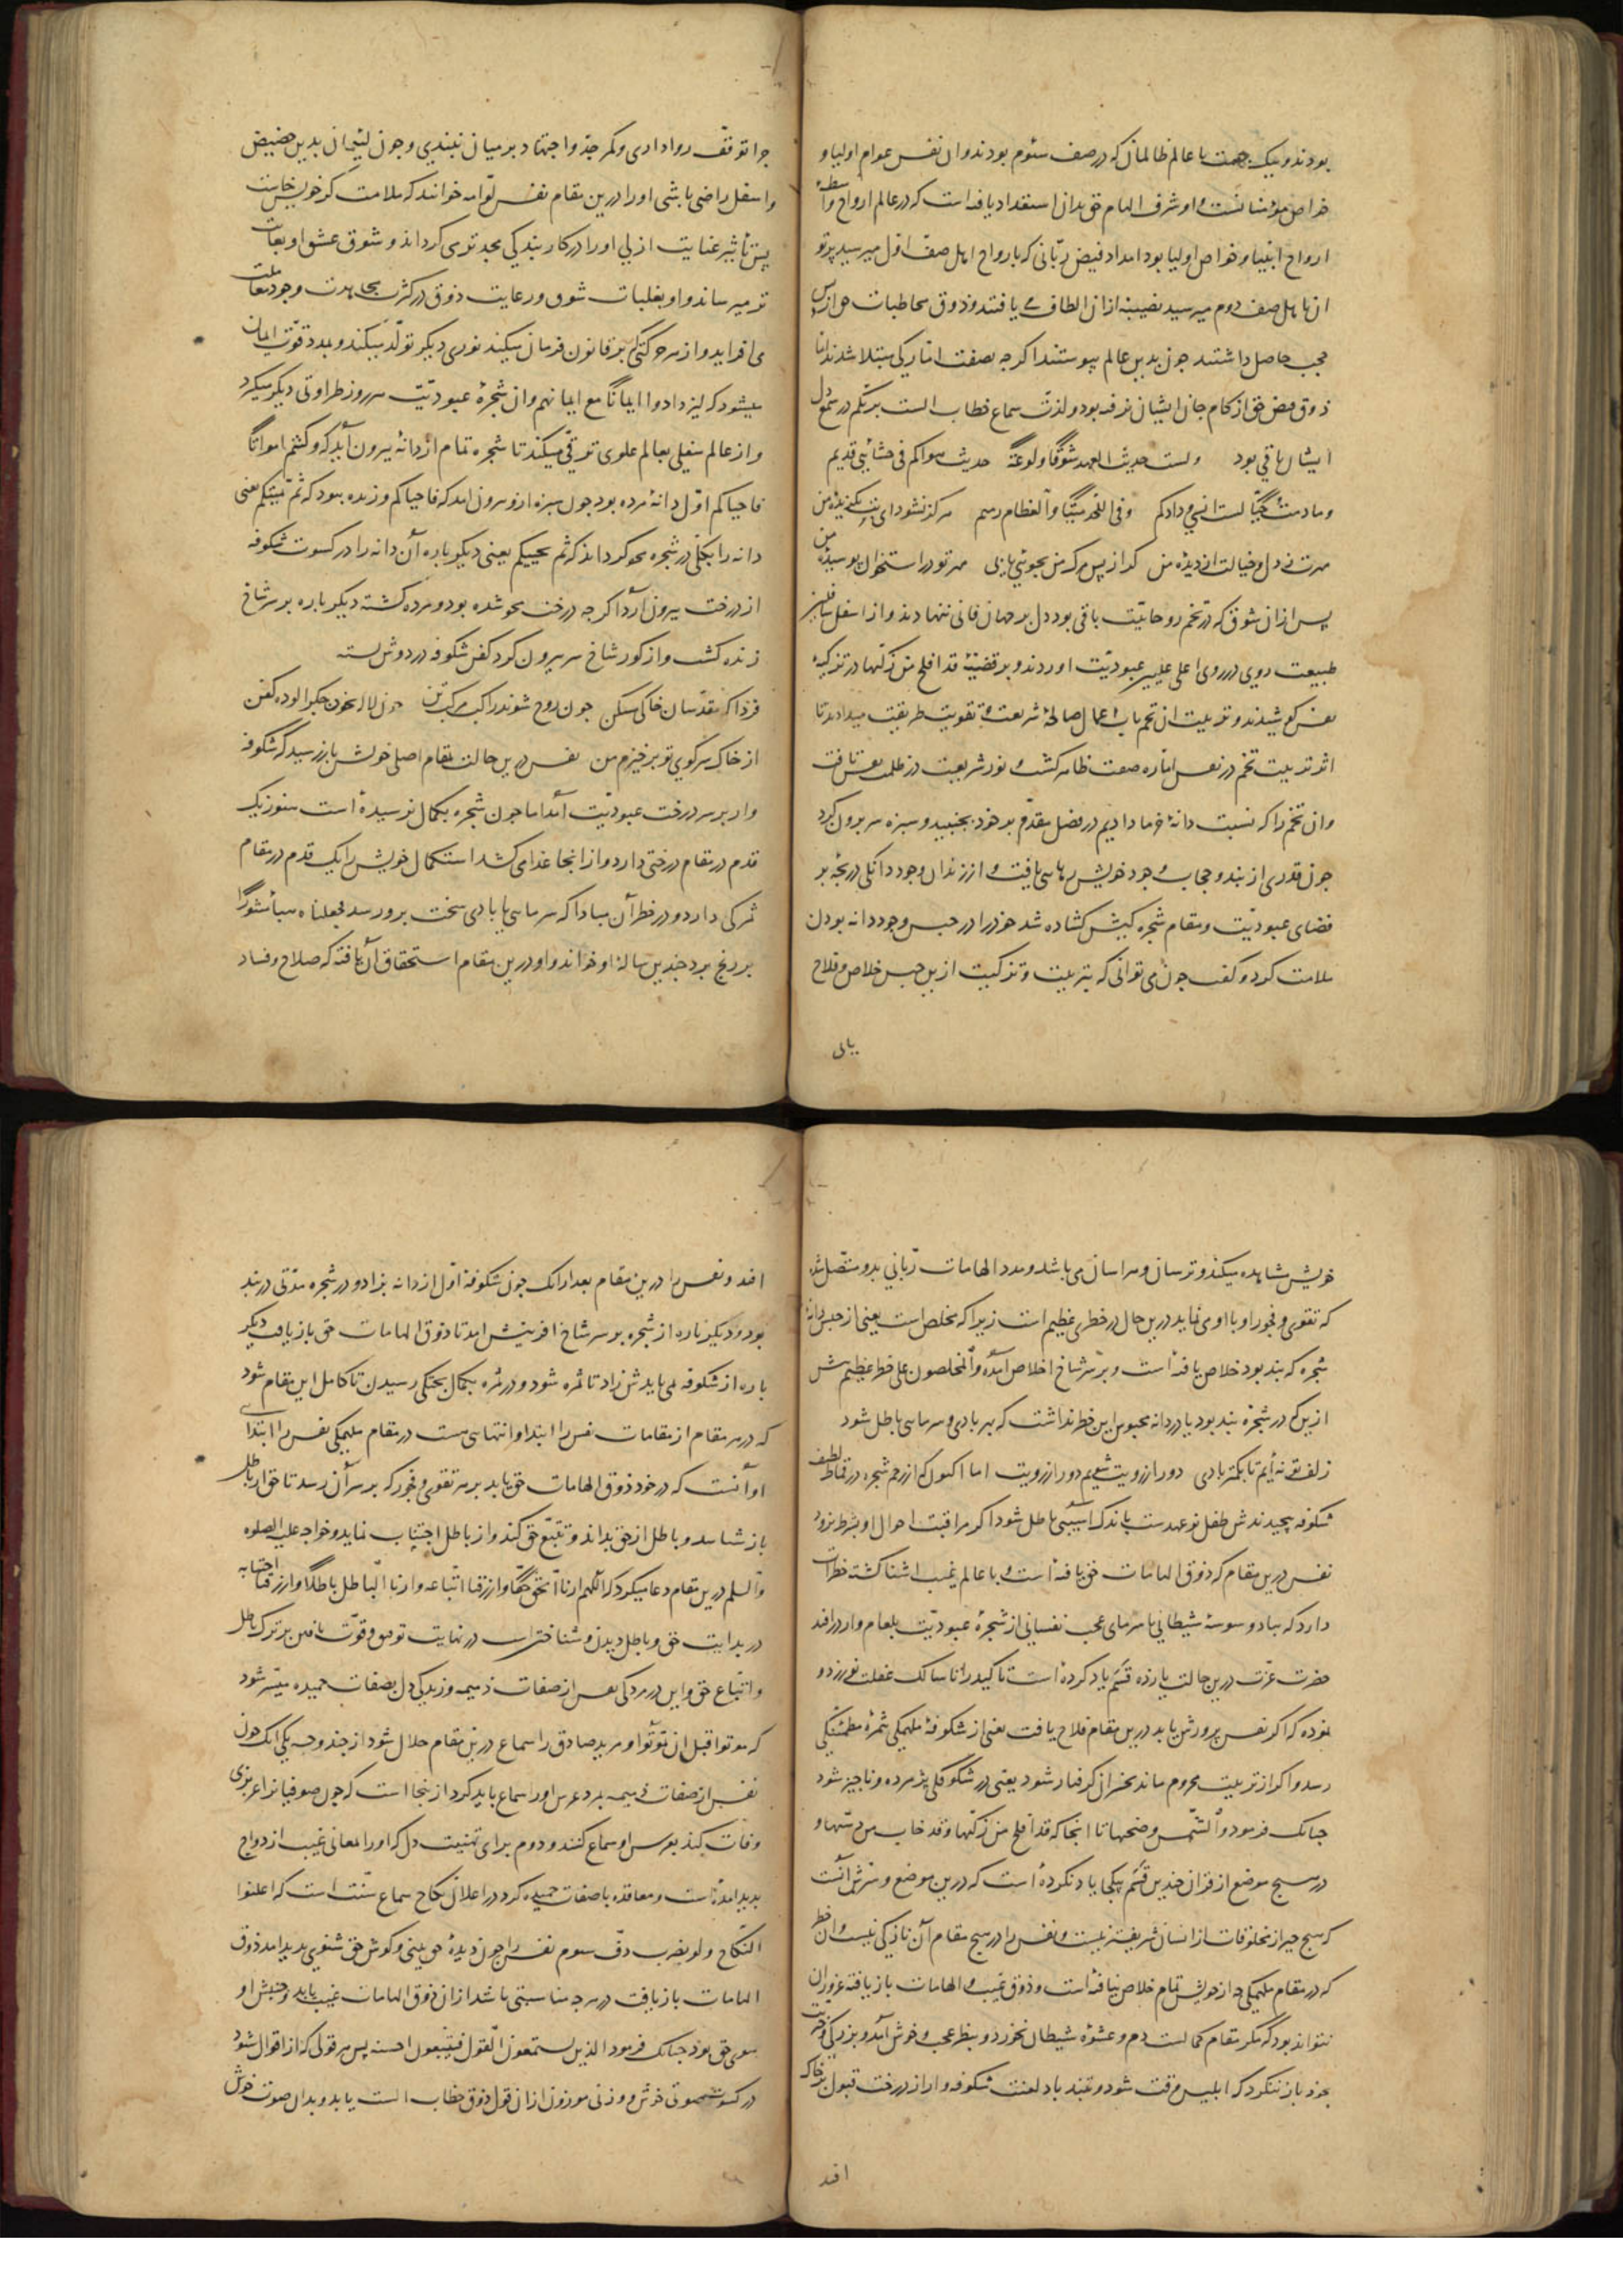 بودند و بیک جهت با عالم ظالمان که در صف سئوم بودند و ان نفس عوام اولیا و
خواص مؤمنانست و او شرف الهام حق بدان استعداد یافته است که در عالم ارواح واسطهٔ
ارواح انبیا و خواص اولیا بود امداد فیض ربّانی که بارواح اهل صفّ اوّل میرسید پرتو
ان باهل صف دوم میرسید نصیبه از ان الطاف می یافتند و ذوق مخاطبات حق از پس
حجب حاصل داشتند چون بدین عالم پیوستند اگرچه بصفت امّارگی مبتلا شدند امّا
ذوق فیض حق از کام جان ایشان نرفته بود و لذت سماع خطاب الست بربّکم در سمع دل
ایشان باقی بود ولست حدیث العهد شوقًا ولوعةً حدیث هواکم فی حشایئی قدیم
وما دمت حیًّا لست انسی ودادکم وفی اللحد میتًا والعظام رمیم هرگز نشود ای بت بگزیدهٔ من
مهرت ز دل و خیالت از دیدهٔ من گر از پس مرگ من بجوئی یابی مهر تو در استخوان پوسیدهٔ من
پس از ان شوق که در تخم روحانیّت باقی بود دل بر جهان فانی ننهادند و از اسفل سافلین
طبیعت روی در روی اعلی علیین عبودیّت اوردند و بر قضیّهٔ قد افلح من زکّیها در تزکیهٔ
نفس کوشیدند و تربیت ان تخم باب اعمال صالحهٔ شریعت و تقویت طریقت میدادند تا
اثر تربیت تخم در نفس امّاره صفت ظاهر گشت و نور شریعت در ظلمت نفس تافت
و ان تخم را که نسبت دانهٔ خرما دادیم در فصل مقدّم بر خود بجنبید و سبزه سر برون کرد
چون قدری از بند و حجاب وجود خویش رهایی یافت و از زندان وجود دانگی دریچه بر
فضای عبودیّت و مقام شجره گیش گشاده شد خود را در حبس وجود دانه بودن
ملامت کرد و گفت چون می توانی که بتربیت و تزکیت ازین حبس خلاص و فلاح
یابی
چرا توقف روا داری و کمر جدّ و اجتهاد بر میان نبندی و چون لئیمان بدین حضیض
و اسفل راضی باشی او را درین مقام نفس لوّامه خوانند که ملامت گر خویش خاست
پس تأثیر عنایت ازلی او را در کار بندگی بجدتر می گرداند و شوق عشق او بغایت
تر میرساند و او بغلبات شوق و رعایت ذوق در کثرت مجاهدت وجود معاملت
می افزاید و از هر حرکتی که بر قانون فرمان میکند نوری دیگر تولّد میکند و مدد قوّت ایمان
میشود که لیزدادوا ایمانًا مع ایمانهم و ان شجرهٔ عبودیّت هر روز طراوتی دیگر میگیرد
و از عالم سفلی بعالم علوی ترقّی میکند تا شجره تمام از دانه بیرون آید که وکنتم امواتًا
فاحیاکم اوّل دانهٔ مرده بود چون سبزه ازو برون امد که فاحیاکم و زنده ببود که ثمّ یمیتکم یعنی
دانه را بکلّی در شجره محو گرداند که ثم یحییکم یعنی دیگر باره آن دانه را در کسوت شکوفه
از درخت بیرون آرد اگرچه درخت محو شده بود و مرده گشته دیگر باره بر سر شاخ
زنده گشت و از گور شاخ سر بیرون کرد کفن شکوفه در دوش بسته
فردا که مقدّسان خاکی مسکن چون روح شوند راکب مرکب تن چون لاله بخون جگر الوده کفن
از خاک سر کوی تو برخیزم من نفس درین حالت بمقام اصلی خویش باز رسید که شکوفه
وار بر سر درخت عبودیّت آمد اما چون شجره بکمال نرسیده است هنوز یک
قدم در مقام درختی دارد و از انجا غذا می کشد استکمال خویش را یک قدم در مقام
ثمرگی دارد و در خطر آن مبادا که سرمایی یا بادی سخت برو رسد فجعلناه هباءً منثورًا
بر رنج برد چندین سالهٔ او خواند و او درین مقام استحقاق آن یافته که صلاح و فساد
خویش مشاهده میکند و ترسان و هراسان می باشد و مدد الهامات ربّانی بدو متّصل شده
که تقوی و فجور او با او می نماید درین حال در خطری عظیم است زیرا که مخلص است یعنی از حبس دانهٔ
شجره که بند بود خلاص یافته است و بر سر شاخ اخلاص آمده والمخلصون علی خطر عظیم پیش
ازین که در شجره بند بود یا در دانه محبوس این خطر نداشت که بهر بادی و سرمایی باطل شود
زلف تو نه ایم تا بکمتر بادی دور از رویت شویم دور از رویت اما اکنون که از رحم شجره در قماط لطیف
شکوفه پیچیدندش طفل نوعهدست باندک آسیبی باطل شود اگر مراقبت احوال او بشرط نرود
نفس درین مقام که ذوق الهامات حق یافته است و با عالم غیب اشنا گشته خطرات
دارد که بباد وسوسهٔ شیطانی یا سرمای عجب نفسانی از شجرهٔ عبودیّت بلعام وار در افتد
حضرت عزّت درین حالت یازده قسم یاد کرده است تاکید را تا سالک غفلت نورزد و
نموده که اگر نفس پرورش یابد درین مقام فلاح یافت یعنی از شکوفهٔ ملهمگی بثمرهٔ مطمئنگی
رسد و اگر از تربیت محروم ماند بخسران گرفتار شود یعنی در شکوفگی پژمرده و ناچیز شود
چنانک فرمود والشّمس وضحیها تا انجا که قد افلح من زکّیها وقد خاب من دسّیها و
در هیچ موضع از قران چندین قسم بیکجا یاد نکرده است که درین موضع و سرّش آنست
که هیچ چیز از مخلوقات از انسان شریفتر نیست و نفس را در هیچ مقام آن نازکی نیست و ان خطر
که در مقام ملهمگی چه از خویش تمام خلاص نیافته است و ذوق غیب و الهامات باز یافته غرور ان
نتواند بود که مگر مقام کمالست دم و عشوهٔ شیطان نخورد و بنظر عجب و خوش آمد و بزرگی و حرمت
بخود باز ننگرد که ابلیس وقت شود و بتند باد لعنت شکوفه وار از درخت قبول بر خاک
افتد
افتد و نفس را درین مقام بعد از انک چون شکوفه اوّل از دانه بزاد و در شجره مدّتی در بند
بود و دیگر باره از شجره بر سر شاخ افرینش امد تا ذوق الهامات حق باز یافت دیگر
باره از شکوفه می بایدش زاد تا ثمره شود و در ثمره بکمال پختگی رسیدن تا کامل این مقام شود
که در هر مقام از مقامات نفس را ابتدا و انتهایی هست در مقام ملهمگی نفس را ابتدای
او آنست که در خود ذوق الهامات حق یابد بر هر تقوی و فجور که بر سر آن رسد تا حق از باطل
باز شناسد و باطل از حق بداند و تتبّع حق کند و از باطل اجتناب نماید و خواجه علیه الصلوه
والسلم درین مقام دعا میکرد که اللّهم ارنا الحقّ حقًّا وارزقنا اتّباعه وارنا الباطل باطلًا وارزقنا اجتنابه
در بدایت حق و باطل دیدن و شناختن است در نهایت توفیق و قوّت یافتن بر ترک باطل
و اتّباع حق و این در مردگی نفس از صفات ذمیمه و زندگی دل بصفات حمیده میسّر شود
که موتوا قبل ان تموتوا و مرید صادق را سماع درین مقام حلال شود از چند وجه یکی انک چون
نفس از صفات ذمیمه بمرد عرس او را سماع باید کرد از ینجا است که چون صوفیان را عزیزی
وفات کند بعرس او سماع کنند و دوم برای تهنیت دل که او را معانی غیب ازدواج
بدید امده است و معاقده با صفات حمیده کرد در اعلان نکاح سماع سنّت است که اعلنوا
النّکاح ولو بضرب دفّ سوم نفس را چون دیدهٔ حق بینی و گوش حق شنوی بدید امد ذوق
الهامات باز یافت در هر چه مناسبتی باشد از ان ذوق الهامات غیب یابد و جنبش او
سوی حق بود چنانک فرمود الذین یستمعون القول فیتبعون احسنه پس هر قولی که از اقوال شنود
در کسوت صوتی خوش و وزنی موزون از ان قول ذوق خطاب الست یابد و بدان صوت خوش